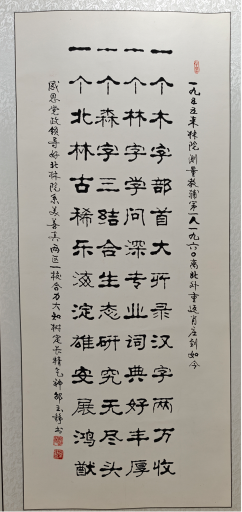 一九五五 林院测量教 第一人一九六〇离北外重返肖庄到如今
一个木字部首大所录汉字两万收
一个林字学问深专业词典好丰厚
一个森字三结合生态研究无尽头
一个北林古稀乐海淀雄安展鸿猷
感恩党政领导好北林院系美善真两区一校合力大知树定长精气神 玉 书